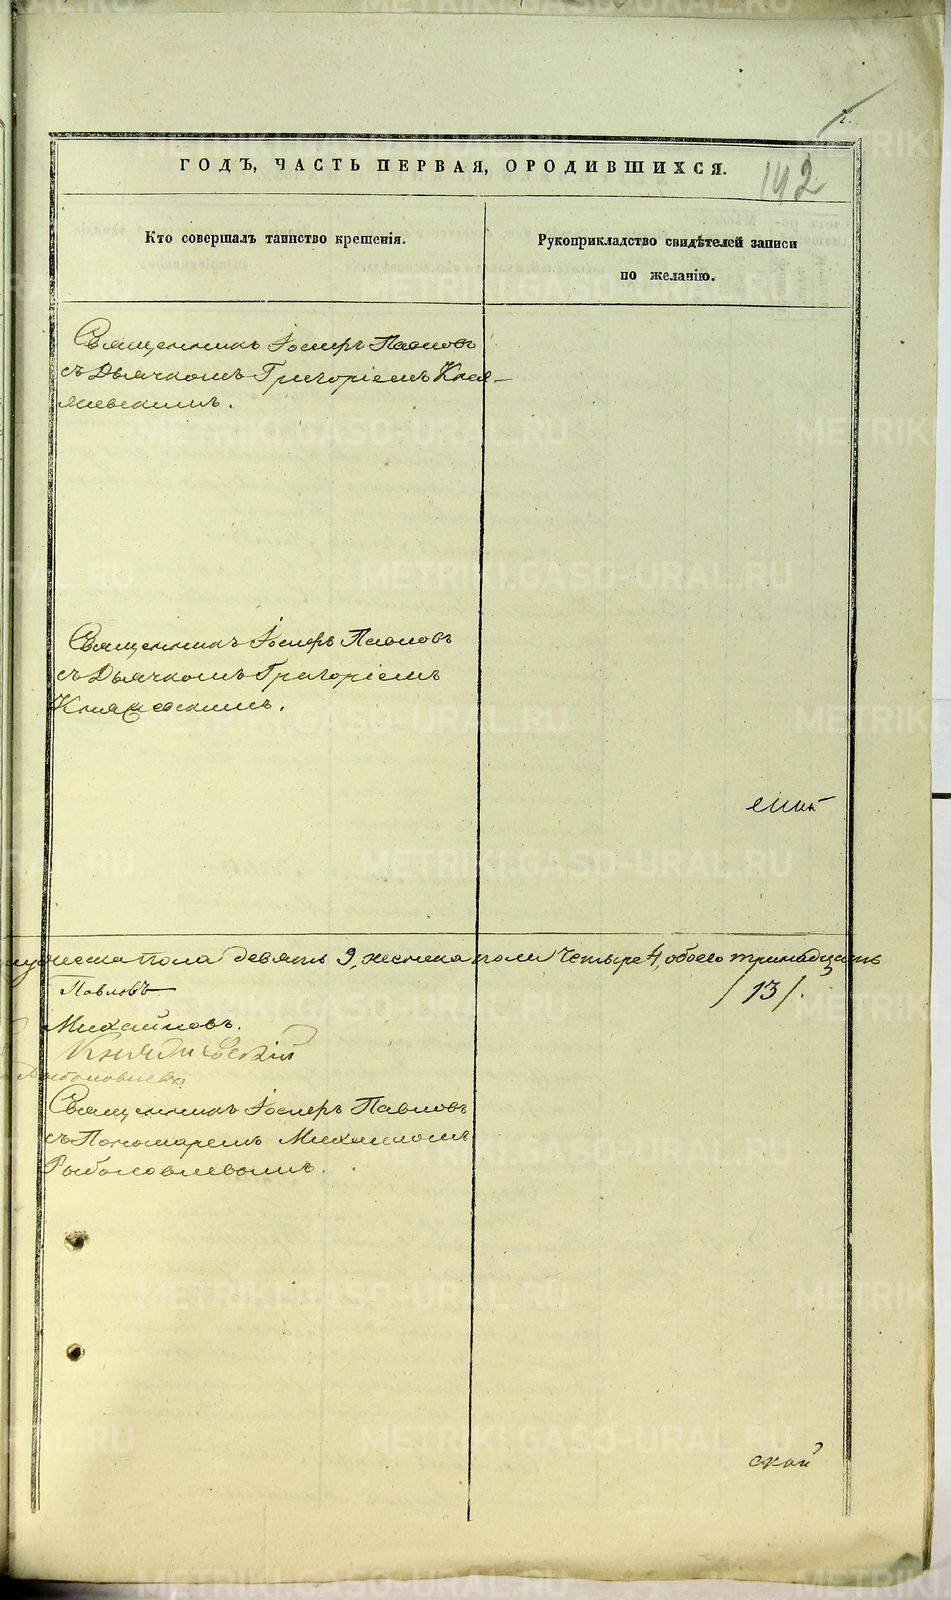 ГОДЪ, ЧАСТЬ ПЕРВАЯ, О РОДИВШИХСЯ.
142
Кто совершалъ таинство крещенія.
Рукоприкладство свидѣтелей записи
по желанію.
Священникъ Іосифъ Павловъ
съ Дьячкомъ Григоріемъ Кня-
жевскимъ.
Священникъ Іосифъ Павловъ
съ Дьячкомъ Григоріемъ
Княжевскимъ.
мужеска пола девять 9, женска пола Четыре 4, обоего тринадцать
Павловъ /13/.
Михайловъ.
Княжевскій
Рыболовлевъ
Священникъ Іосифъ Павловъ
съ Пономаремъ Михаиломъ
Рыболовлевымъ.
ской
METRIKI.GASO-URAL.RU